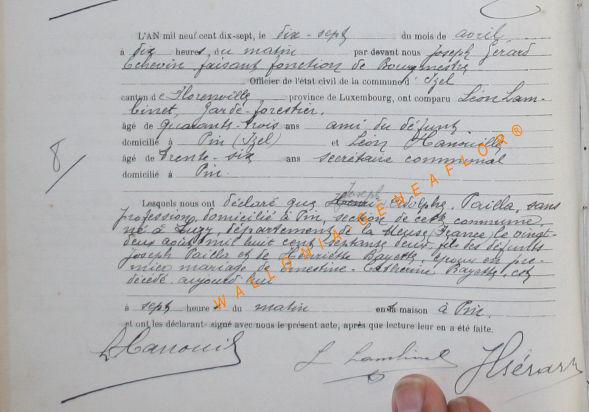 L'AN mil neuf cent dix-sept, le dix-sept du mois de avril
à dix heures, du matin par devant nous Joseph Gerard
Echevin, faisant fonction de Bourgmestre
Officier de l'état civil de la commune d'Izel
canton de Florenville province de Luxembourg, ont comparu Léon Lam-
binet, garde-forestier.
âgé de Quarante-trois ans ami du défunt
domicilié à Pin (Izel) et Léon Hanouille
âgé de Trente-six ans secrétaire communal
domicilié à Pin.
8
Lesquels nous ont déclaré que Joseph Adolphe Pailla, sans
profession, domicilié à Pin, section de cette commune
né à département de la Meuse, France, le vingt
deux août mil huit cent septante deux, fils des défunts
Joseph Pailla et de Henriette époux en pre-
mier mariage de Ernestine-Catherine est
décédé aujourd'hui
à sept heures du matin en sa maison à Pin
et ont les déclarants signé avec nous le présent acte, après que lecture leur en a été faite.
L Lambinet
WALLONIA GENEAFLOR®